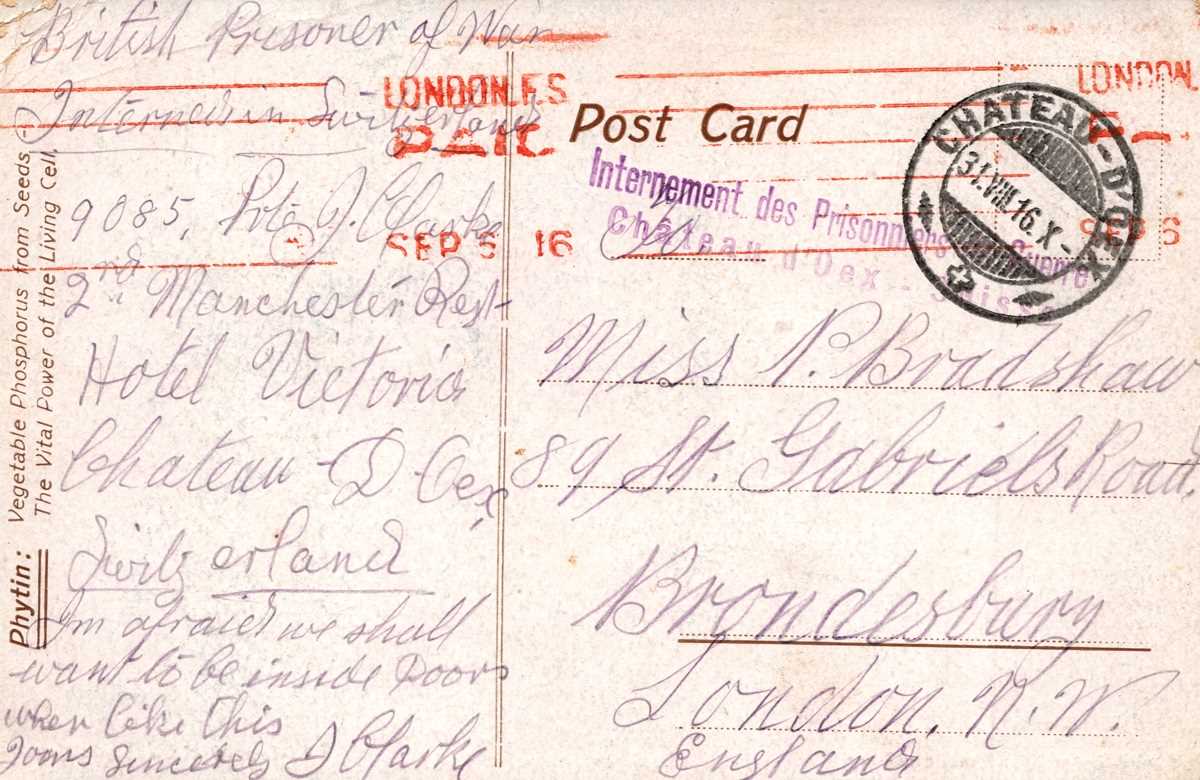 British Prisoner of War
Interned in Switzerland
9085, Pte J. Clarke
2nd Manchester Regt
Hotel Victoria
Chateau-D-Oex,
Switzerland
Im afraid we shall
want to be inside Doors
when like this
Yours Sincerely J Clarke
Phytin: Vegetable Phosphorus from Seeds
The Vital Power of the Living Cell.
LONDON.F.S
PAID
SEP 5 16
Post Card
LONDON
SEP 6
CHATEAU-D'OEX
31.VIII.16.X-
Internement des Prisonniers de Guerre
Château d'Oex - Suisse
Miss P. Bradshaw
89 St. Gabriels Road,
Brondesbury
London. N.W.
England